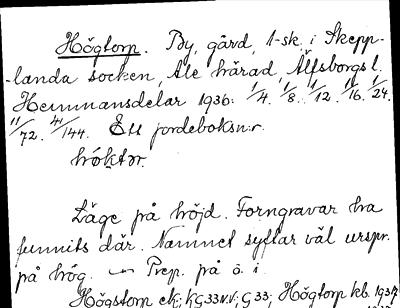 Högtorp. By, gård, 1-sk. i Skepp-
-landa socken, Ale härad, Älfsborgs l.
Hemmansdelar 1936: 1/4. 1/8. 1/12. 1/16. 1/24.
11/72. 41/144. Ett jordeboksn:r.
hök̡tɔr.
Läge på höjd. Forngravar ha
funnits där. Namnet syftar väl urspr.
på hög. — Prep. på ö. i.
Högstorp ek; KG33NV; G33; Högtorp kb. 1937